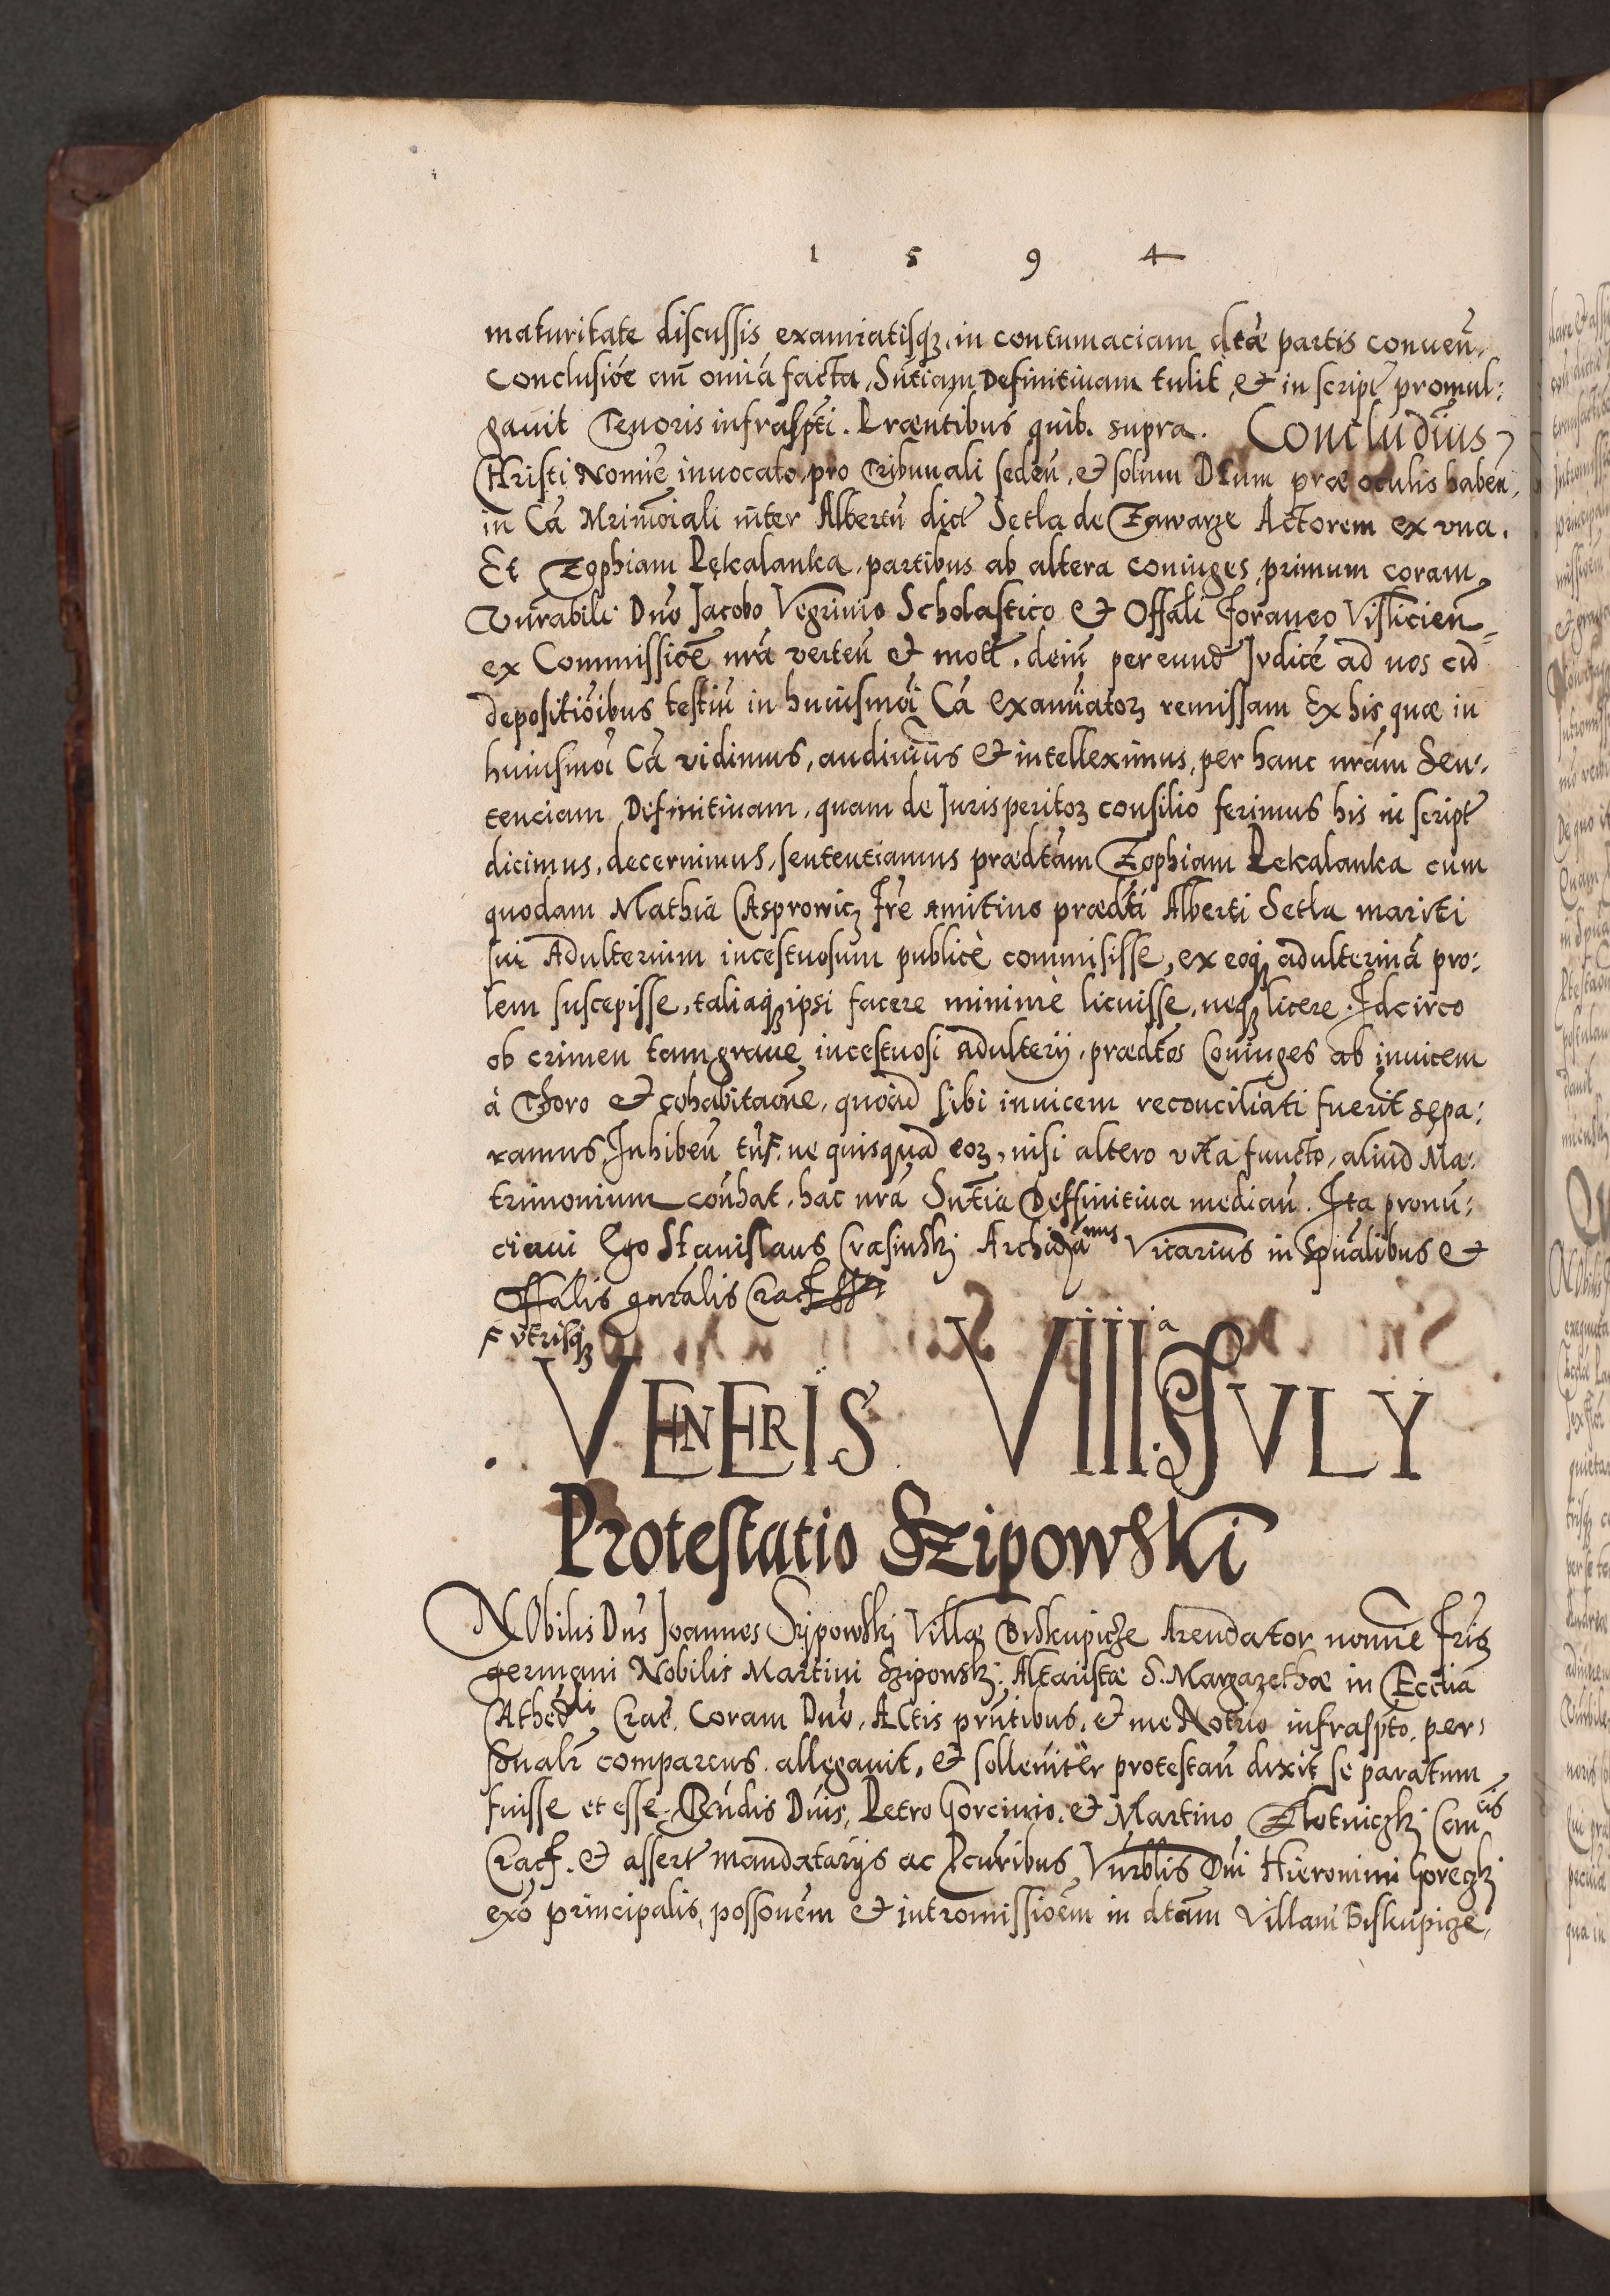 1 5 9 4
maturitate discussis examiatisq₃, in contumaciam dtæ partis conuen̄,
Conclusióe añ omia facta, Sntiam Definitiuam tulit, et in script promul:
gauit Tenoris infrasp̃ti. Præntibus quib. supra. Concludim̃us
Christi Nomie inuocato, pro Tribunali seden̄, et solum Deum præ oculis haben̄,
in Cã Mrimoiali inter Albertũ dict Setla de Zawarze Actorem ex vna.
Et Zophiam Pękalanka, partibus ab altera coniuges, primum coram
Vnrabili Dn̄o Jacobo Vegrinio Scholastico et Offali Foraneo Visliciēn
ex Commissióe nrã verten̄ et mott. dein̄ per eund Judicē ad nos cũ
depositióibus testiũ in huiusmōi Cã examiator₃ remissam Ex his, quæ in
huiusmōi Cã vidimus, audiuimus et intelleximus, per hanc nrãm Sen:
tenciam Definitiuam, quam de Jurisperitor₃ consilio ferimus his in script
dicimus, decernimus, sententiamus prædtam Zophiam Pekalanka cum
quodam Mathia Casprowicz Fr̃e amitino præd̃ti Alberti Setla mariti
sui Adulterium incestuosum publicè commisisse, ex eoq₃ adulterinã pro:
lem suscepisse, taliaq₃ ipsi facere minimè licuisse, neq₃ licere. Idcirco
ob crimen tam graue incestuosi adulterij, prædtos Coniuges ab inuicem
à Thoro et cohabitaōne, quoad sibi inuicem reconciliati fuerit sepa:
ramus, Inhiben̄ tn̄ F. ne quisquã eor₃, nisi altero vita functo, aliud Ma:
trimonium con̄hat, hac nrã Sntia Deffinitiua median̄. Ita pronũ:
ciaui Ego Stanislaus Crasinskj Archidẏanus Vicarius in Spualibus et
Offalis gnralis Crac
F vtrisq₃
VENERIS VIIIa JVLY
Protestatio Szipowski
Nobilis Dn̄s Joannes Sijpowskj Villæ Biskupicze Arendator nomie Fris
germani Nobilis Martini Szipowskj Altaristæ S. Margarethæ in Ecclia
Athedli Crac. Coram Dn̄o, Actis prntibus, et me Notrio infrasp̃to, per:
sonalr comparens allegauit, et solleniter protestan̄ dixit se paratum
fuisse et esse. Rn̄dis Dnis, Petro Gorcinio, et Martino Zlotniczkj Canɔis
Crac. et assert mandatarijs ac Pcuribus, Vnrblis Dni Hieronimi Goreczkj
exō principalis, possonem et intromissióem in dtam Villam Biskupicze,